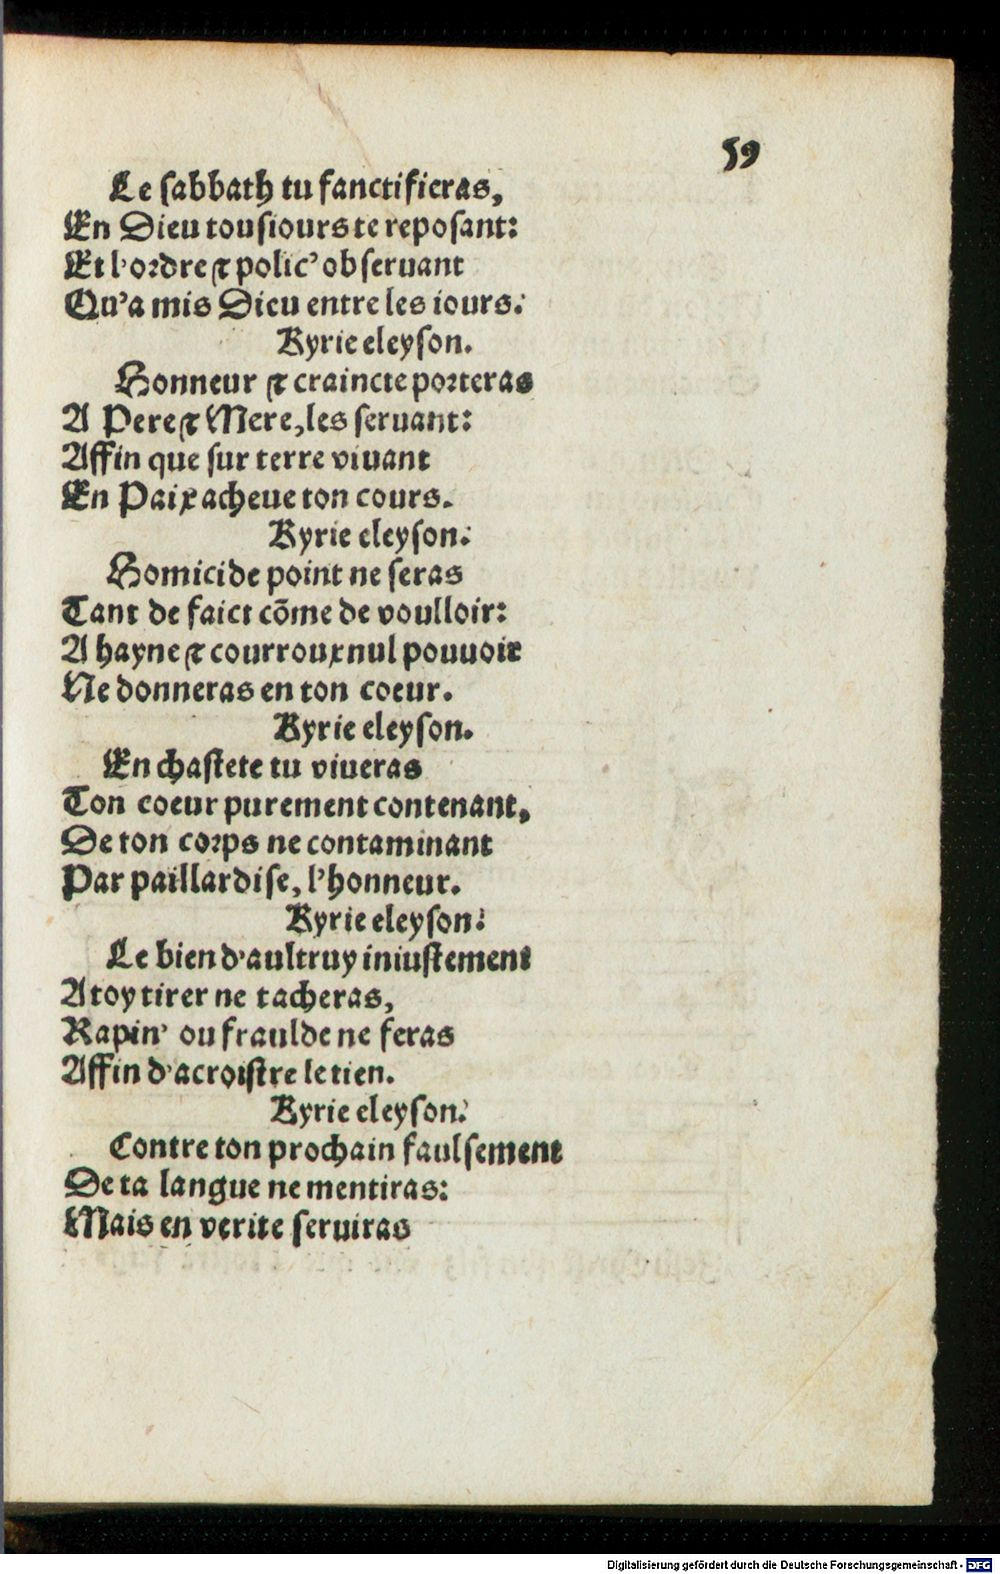 59
Le sabbath tu sanctifieras,
En Dieu tousiours te reposant:
Et l'ordre & polic' observant
Qu'a mis Dieu entre les iours.
Kyrie eleyson.
Honneur & craincte porteras
A Pere & Mere, les seruant:
Affin que sur terre viuant
En Paix acheue ton cours.
Kyrie eleyson.
Homicide point ne seras
Tant de faict cõme de voulloir:
A hayne & courroux nul pouuoir
Ne donneras en ton coeur.
Kyrie eleyson.
En chastete tu viueras
Ton coeur purement contenant,
De ton corps ne contaminant
Par paillardise, l'honneur.
Kyrie eleyson.
Le bien d'aultruy iniustement
A toy tirer ne tacheras,
Rapin' ou fraulde ne feras
Affin d'acroistre le tien.
Kyrie eleyson.
Contre ton prochain faulsement
De ta langue ne mentiras:
Mais en verite seruiras
Digitalisierung gefördert durch die Deutsche Forschungsgemeinschaft - DFG